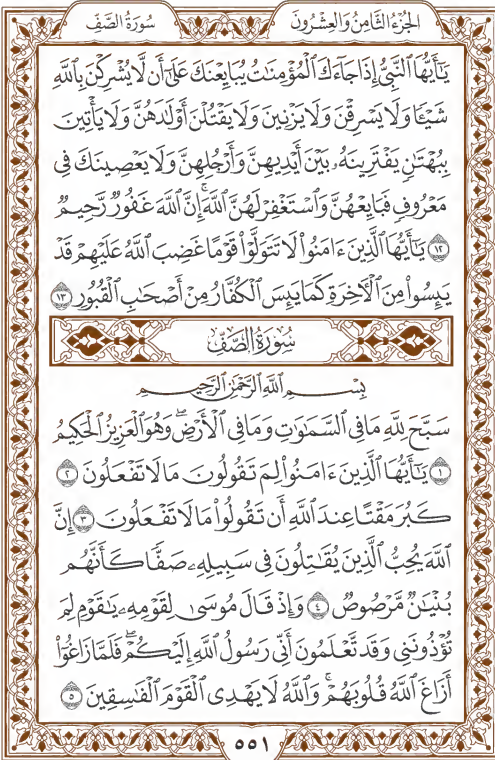 الجُزْءُ الثَّامِنُ وَالعِشْرُونَ
سُورَةُ الصَّفِّ
يَـٰٓأَيُّهَا ٱلنَّبِيُّ إِذَا جَآءَكَ ٱلْمُؤْمِنَـٰتُ يُبَايِعْنَكَ عَلَىٰٓ أَن لَّا يُشْرِكْنَ بِٱللَّهِ
شَيْـًٔا وَلَا يَسْرِقْنَ وَلَا يَزْنِينَ وَلَا يَقْتُلْنَ أَوْلَـٰدَهُنَّ وَلَا يَأْتِينَ
بِبُهْتَـٰنٍ يَفْتَرِينَهُۥ بَيْنَ أَيْدِيهِنَّ وَأَرْجُلِهِنَّ وَلَا يَعْصِينَكَ فِى
مَعْرُوفٍ فَبَايِعْهُنَّ وَٱسْتَغْفِرْ لَهُنَّ ٱللَّهَ ۚ إِنَّ ٱللَّهَ غَفُورٌ رَّحِيمٌ
١٢ يَـٰٓأَيُّهَا ٱلَّذِينَ ءَامَنُوا۟ لَا تَتَوَلَّوْا۟ قَوْمًا غَضِبَ ٱللَّهُ عَلَيْهِمْ قَدْ
يَئِسُوا۟ مِنَ ٱلْـَٔاخِرَةِ كَمَا يَئِسَ ٱلْكُفَّارُ مِنْ أَصْحَـٰبِ ٱلْقُبُورِ ١٣
سُورَةُ الصَّفِّ
بِسْمِ ٱللَّهِ ٱلرَّحْمَـٰنِ ٱلرَّحِيمِ
سَبَّحَ لِلَّهِ مَا فِى ٱلسَّمَـٰوَٰتِ وَمَا فِى ٱلْأَرْضِ ۖ وَهُوَ ٱلْعَزِيزُ ٱلْحَكِيمُ
١ يَـٰٓأَيُّهَا ٱلَّذِينَ ءَامَنُوا۟ لِمَ تَقُولُونَ مَا لَا تَفْعَلُونَ ٢
كَبُرَ مَقْتًا عِندَ ٱللَّهِ أَن تَقُولُوا۟ مَا لَا تَفْعَلُونَ ٣ إِنَّ
ٱللَّهَ يُحِبُّ ٱلَّذِينَ يُقَـٰتِلُونَ فِى سَبِيلِهِۦ صَفًّا كَأَنَّهُم
بُنْيَـٰنٌ مَّرْصُوصٌ ٤ وَإِذْ قَالَ مُوسَىٰ لِقَوْمِهِۦ يَـٰقَوْمِ لِمَ
تُؤْذُونَنِى وَقَد تَّعْلَمُونَ أَنِّى رَسُولُ ٱللَّهِ إِلَيْكُمْ ۖ فَلَمَّا زَاغُوٓا۟
أَزَاغَ ٱللَّهُ قُلُوبَهُمْ ۚ وَٱللَّهُ لَا يَهْدِى ٱلْقَوْمَ ٱلْفَـٰسِقِينَ ٥
٥٥١